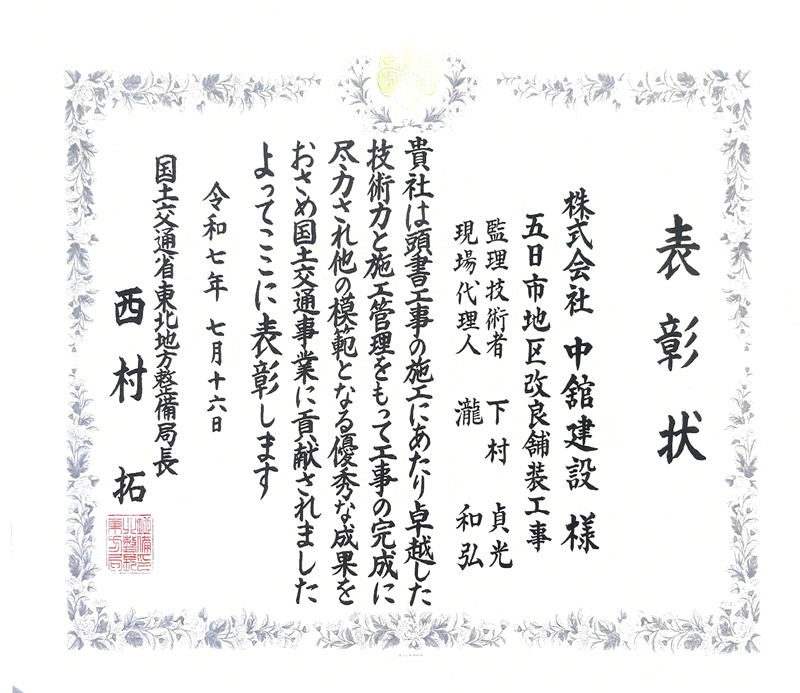 表彰状
株式会社 中舘建設 様
五日市地区改良舗装工事
監理技術者 下村 貞光
現場代理人 瀧 和弘
貴社は頭書工事の施工にあたり卓越した
技術力と施工管理をもって工事の完成に
尽力され他の模範となる優秀な成果を
おさめ国土交通事業に貢献されました
よってここに表彰します
令和七年 七月十六日
国土交通省東北地方整備局長
西村 拓